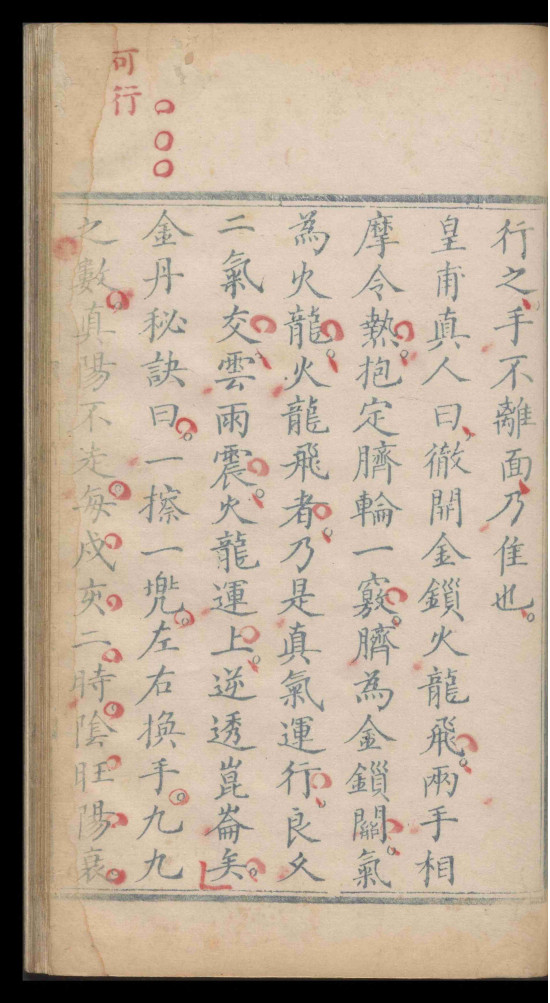 行之手不離面乃佳也
皇甫真人曰徹開金鎖火龍飛兩手相
摩令熱抱定臍輪一竅臍為金鎖關氣
為火龍火龍飛者乃是真氣運行良久
二氣交雲雨震火龍運上逆透崑崙矣
金丹秘訣曰一擦一兜左右換手九九
之數真陽不走每戍亥二時陰旺陽衰
可行